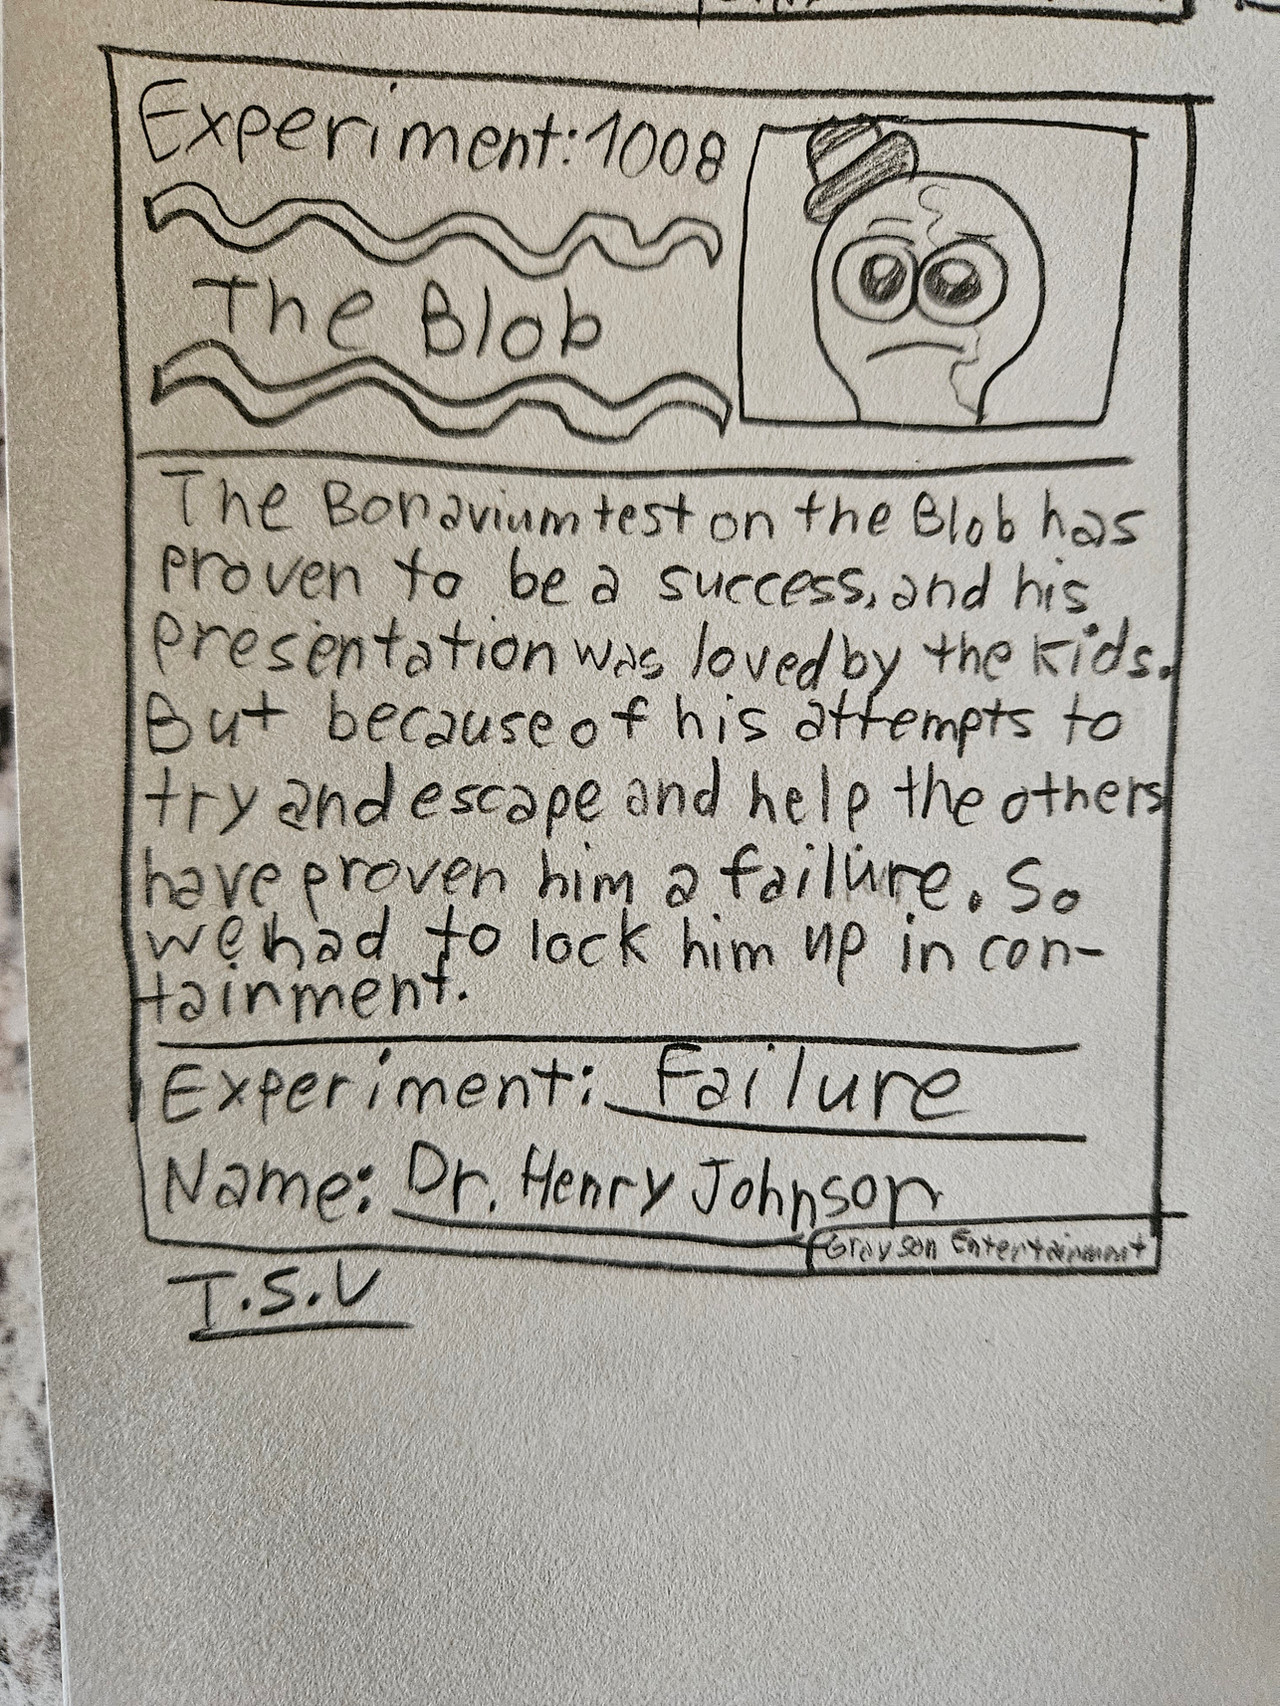 Experiment:1008
The Blob
The Bonavium test on the Blob has
proven to be a success, and his
presentation was loved by the kids.
But because of his attempts to
try and escape and help the others
have proven him a failure. So
we had to lock him up in con-
tainment.
Experiment: Failure
Name: Dr. Henry Johnson
Grayson Entertainment
T.S.V